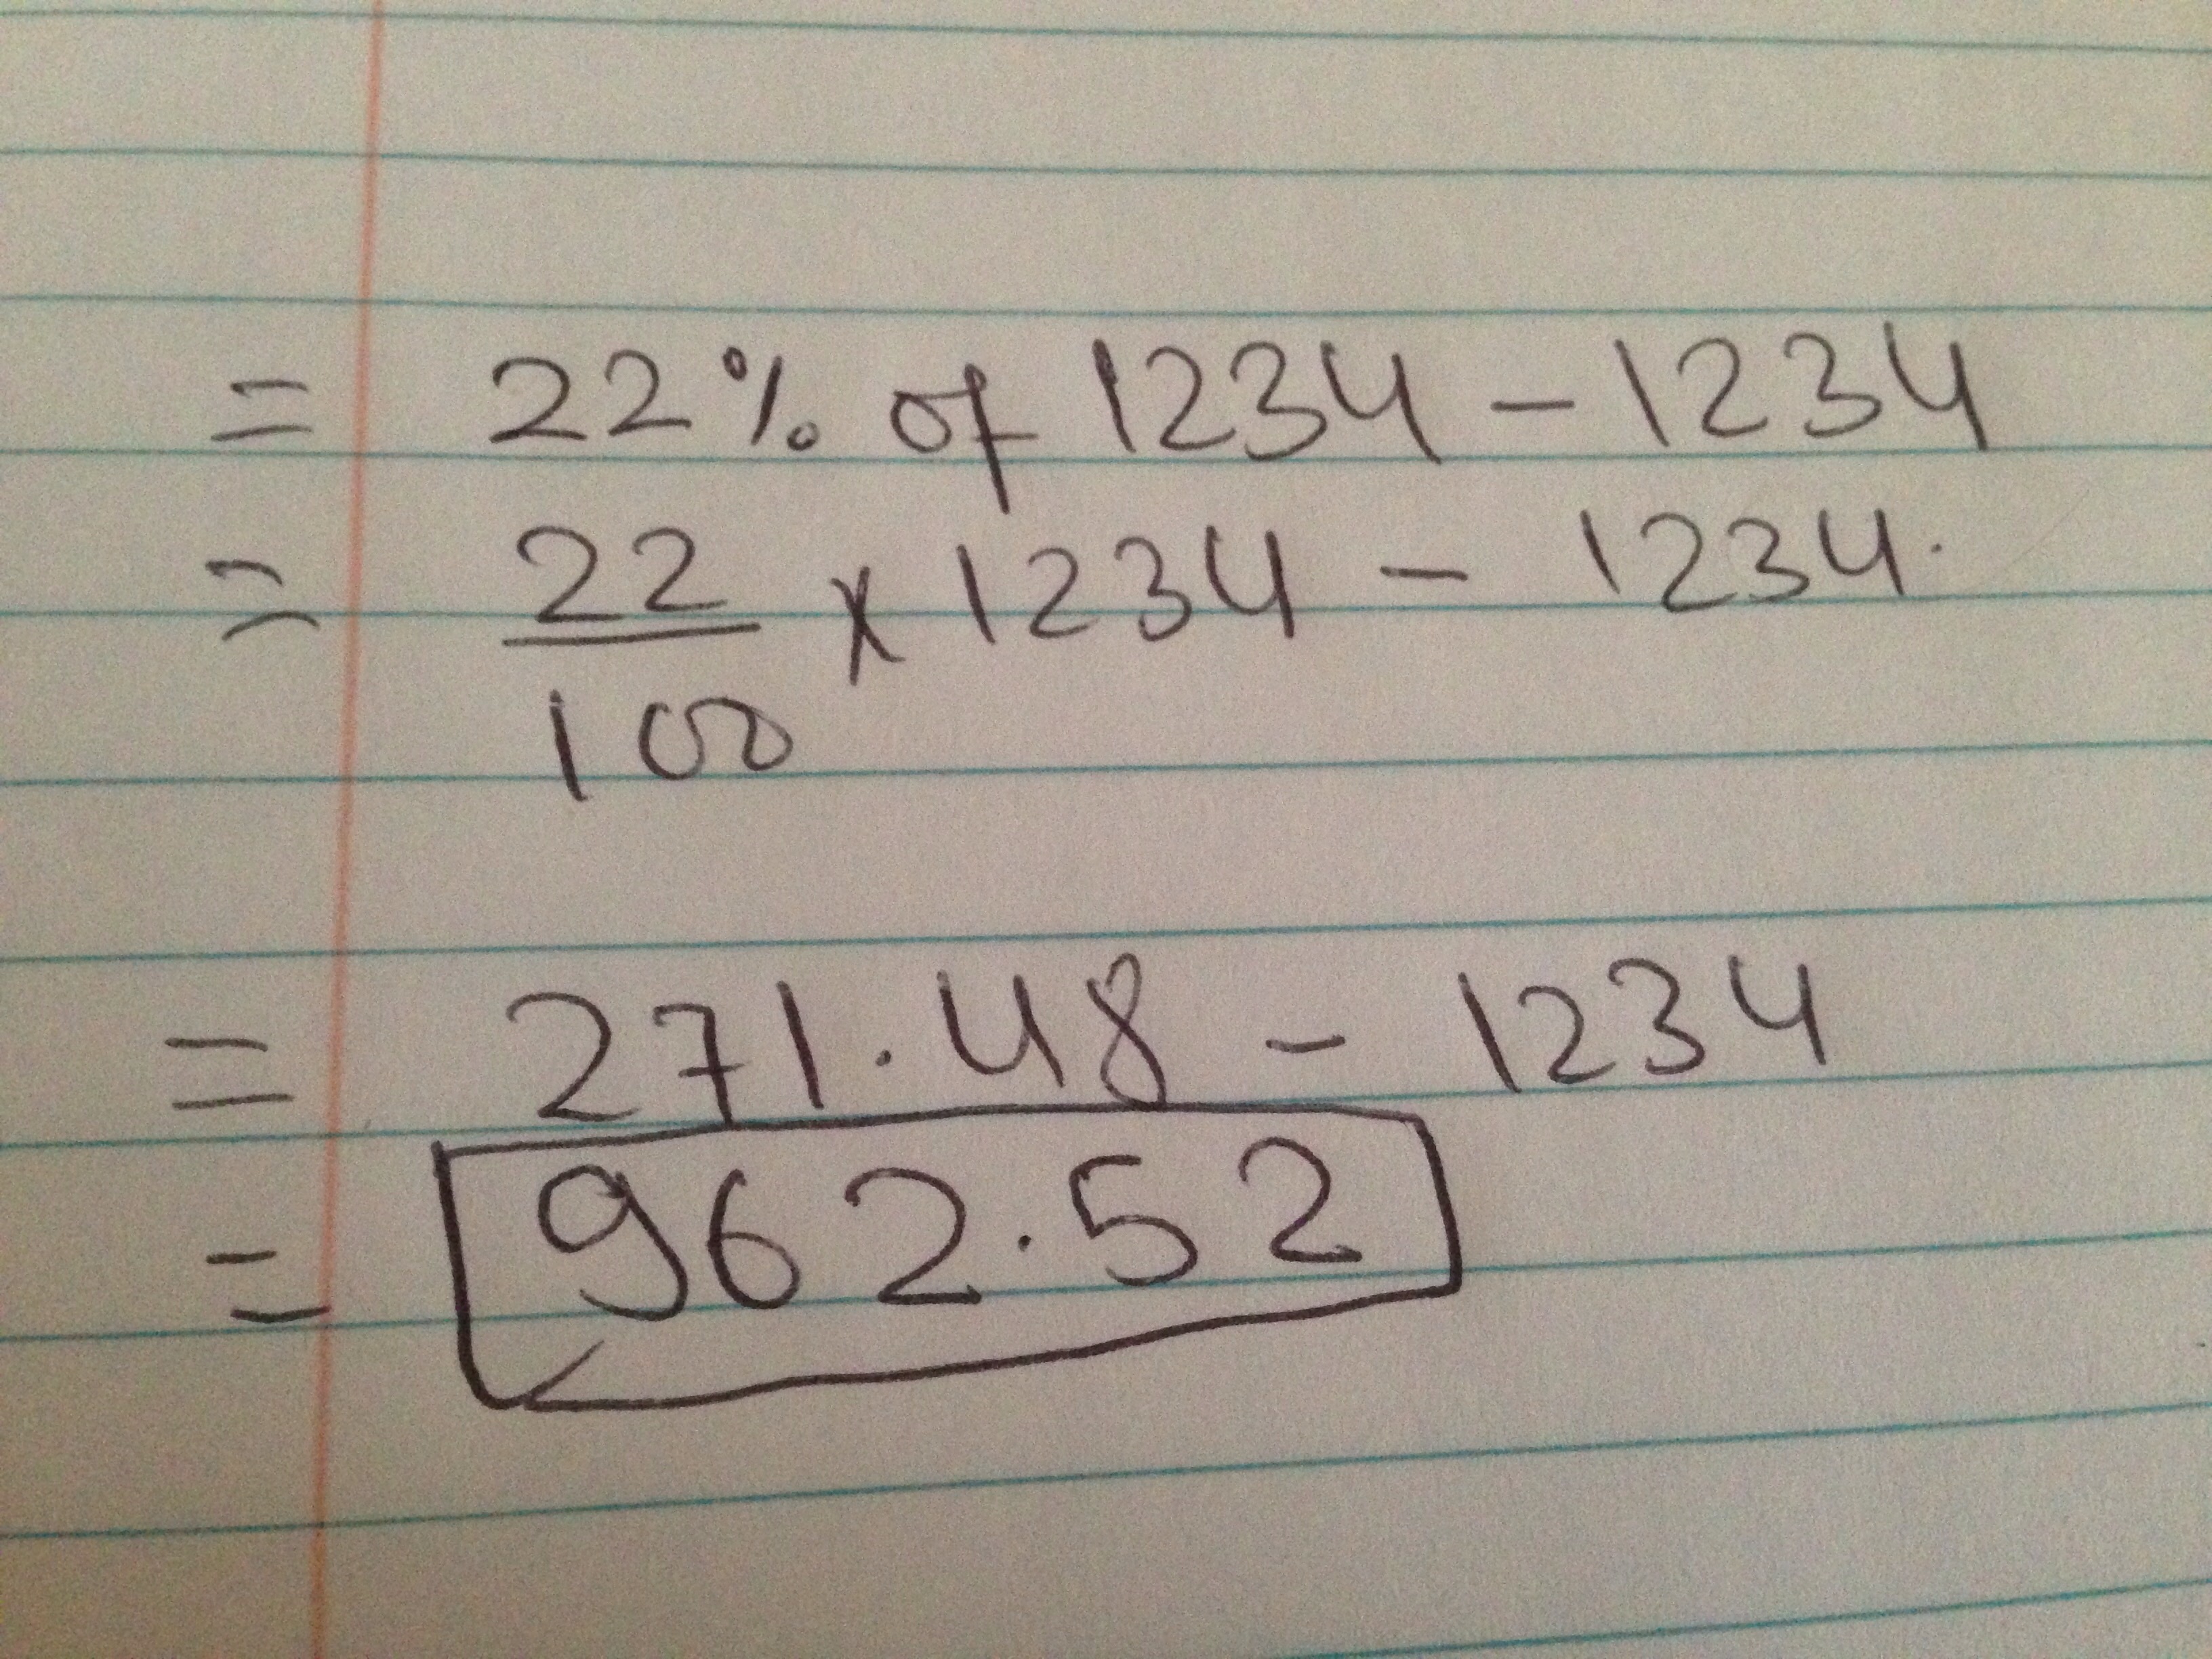 = 22% of 1234 - 1234
= 22/100 x 1234 - 1234.
= 271.48 - 1234
= 962.52